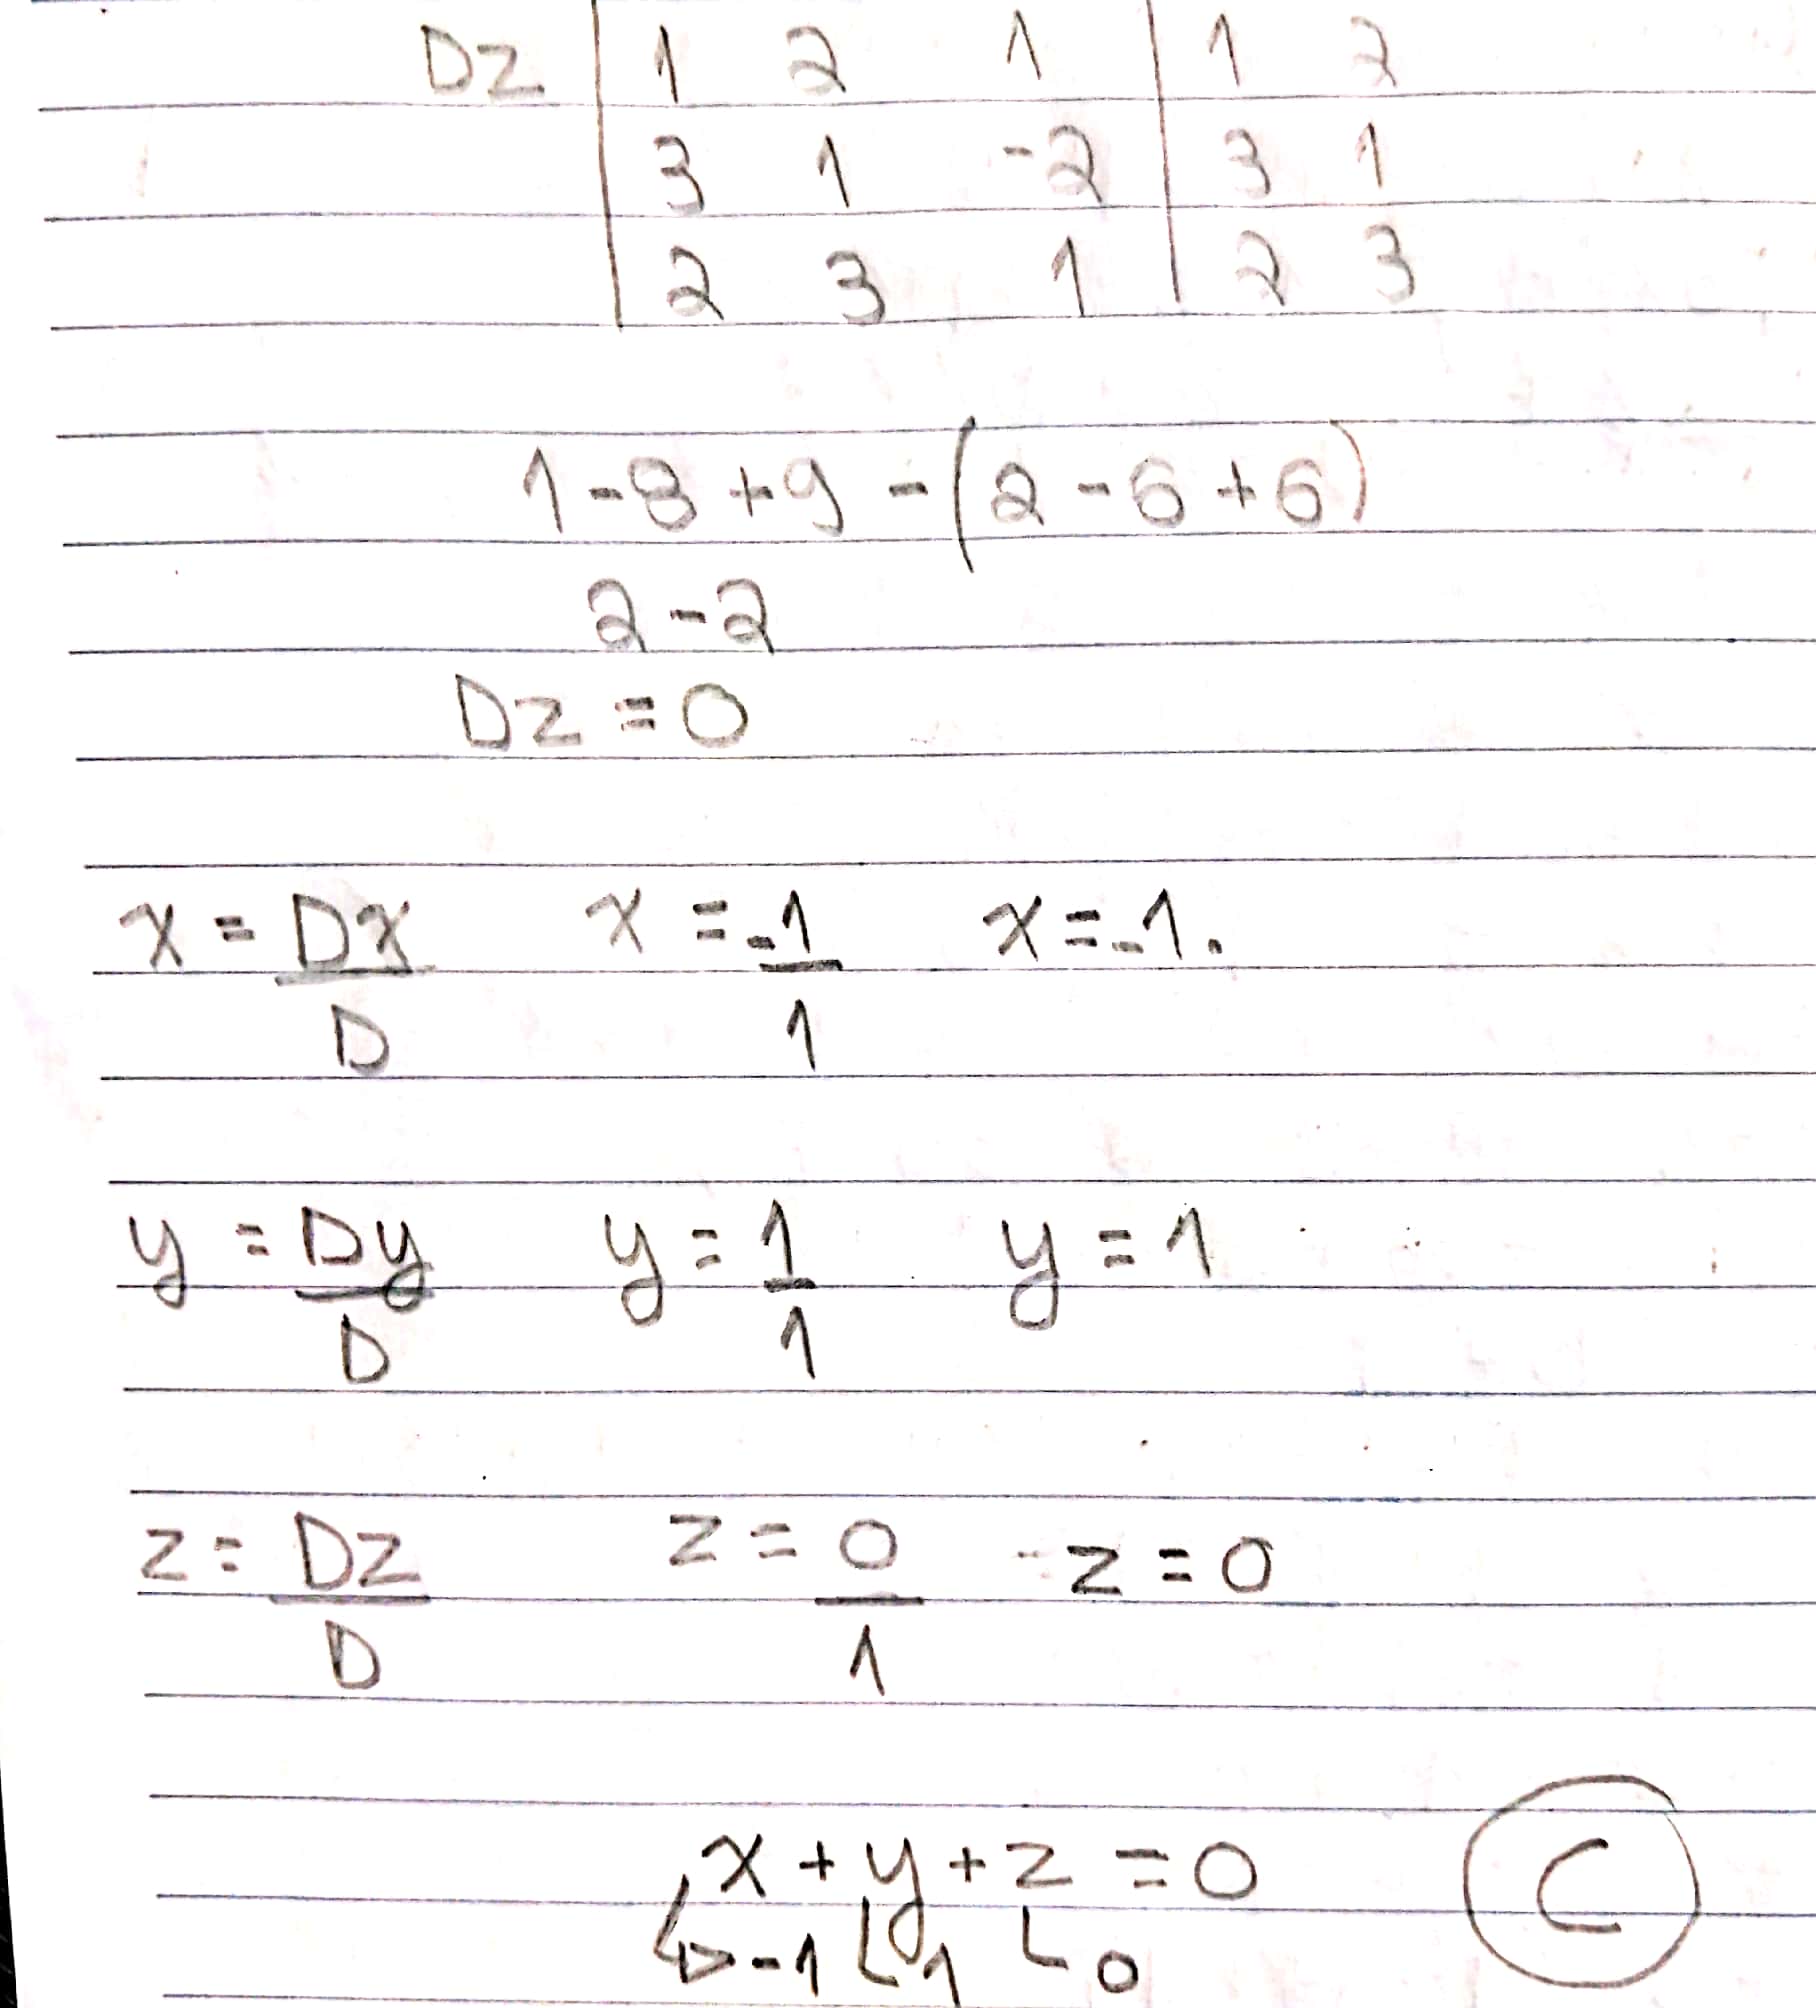 Dz | 1 2 1 | 1 2
3 1 -2 | 3 1
2 3 1 | 2 3
1-8+9-(2-6+6)
2-2
Dz=0
x = Dx x = -1 x=-1.
D 1
y = Dy y = 1 y = 1
D 1
z = Dz z = 0 z = 0
D 1
x + y + z = 0 C
-1 1 0